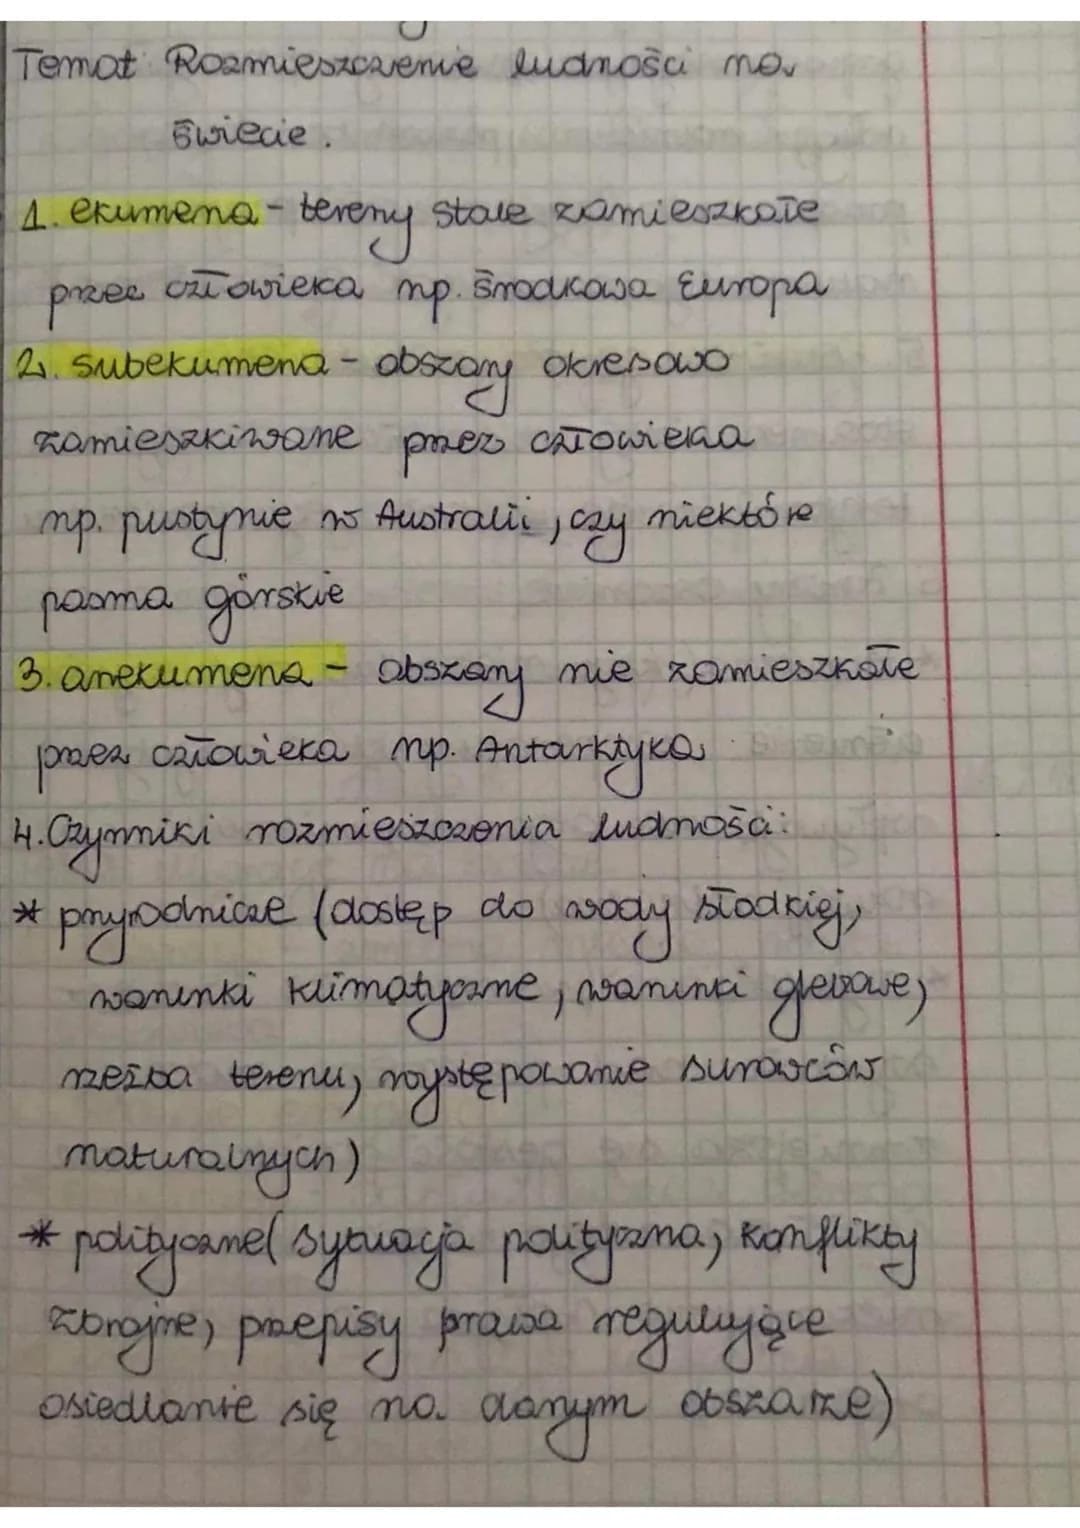 Temat Rozmieszczenie ludności na
świecie.
1. ekumena - tereny stale zamieszkałe
przez człowieka np. środkowa Europa
2. subekumena - obszary okresowo
zamieszkiwane przez człowieka
np. pustynie w Australii, czy niektóre
pasma górskie
3. anekumena - obszary nie zamieszkałe
przez człowieka np. Antarktyka
4. Czynniki rozmieszczenia ludności:
* przyrodnicze (dostęp do wody słodkiej,
warunki klimatyczne, warunki glebowe,
rzeźba terenu, występowanie surowców
naturalnych)
* polityczne (sytuacja polityczna, konflikty
zbrojne, przepisy prawa regulujące
osiedlanie się na danym obszarze)